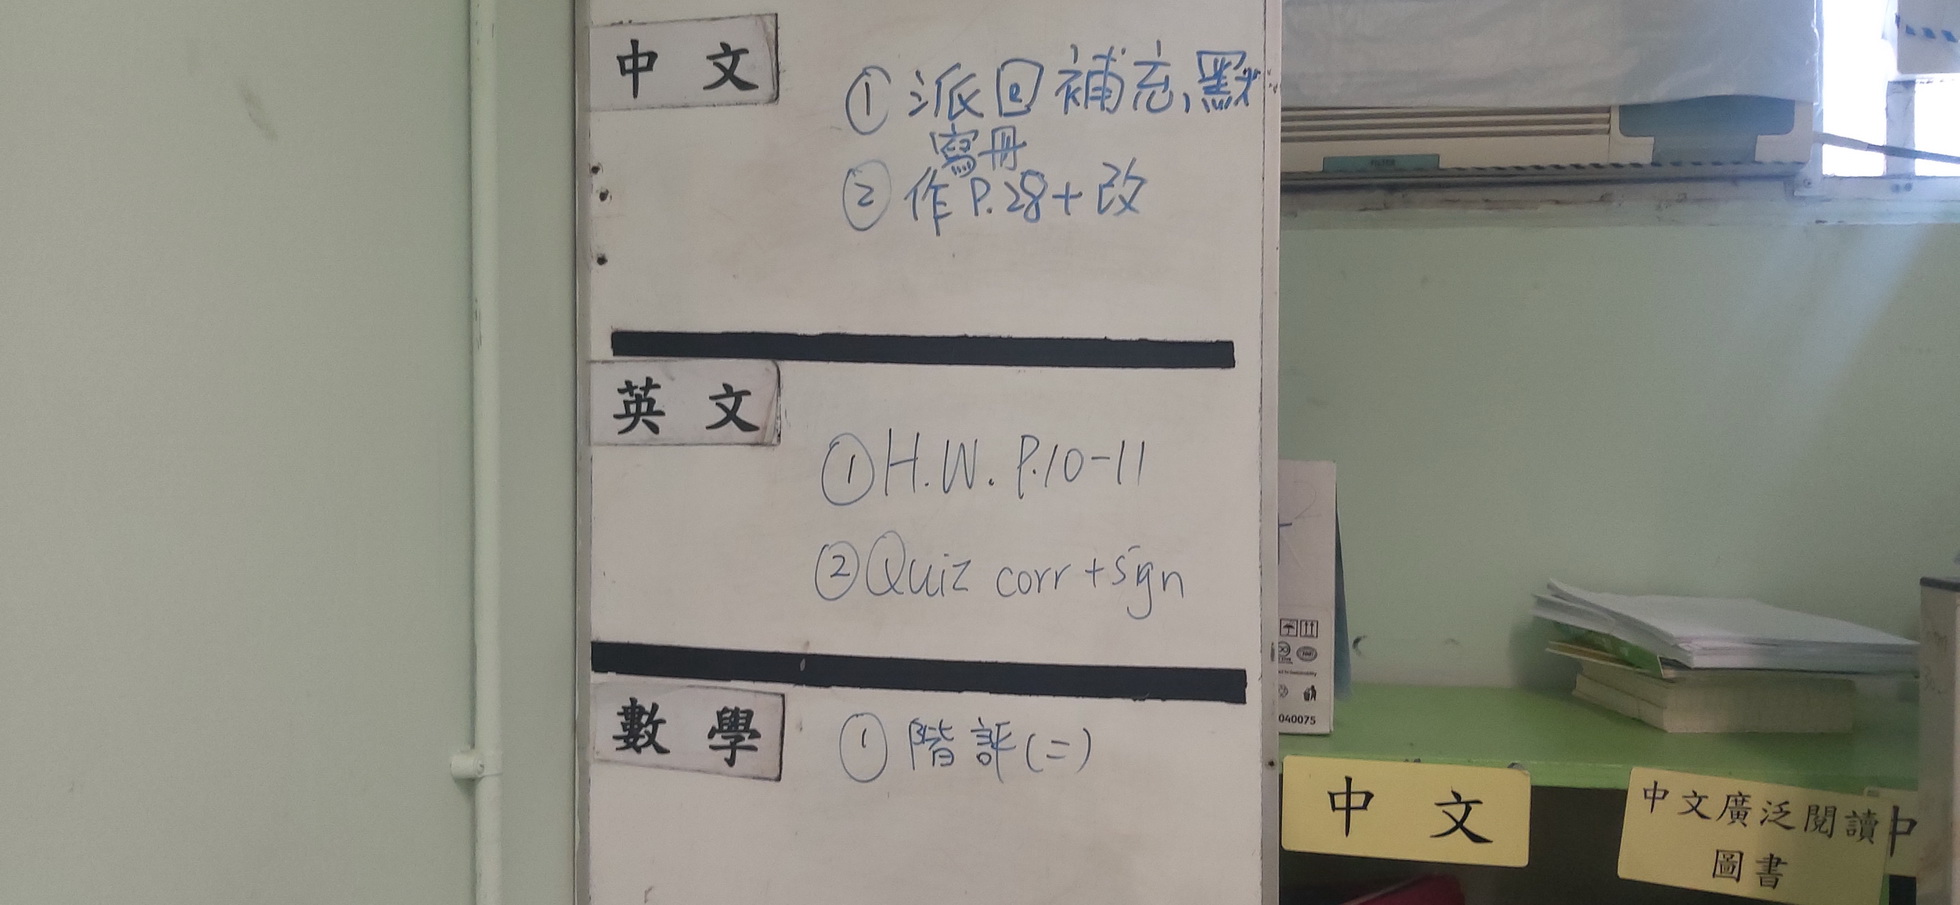 中文
① 派回補充、默
寫冊
② 作 P.28 + 改
英文
① H.W. P.10-11
② Quiz corr + sign
數學
① 階評(二)
FILTER
040075
中文
中文廣泛閱讀
圖書
中